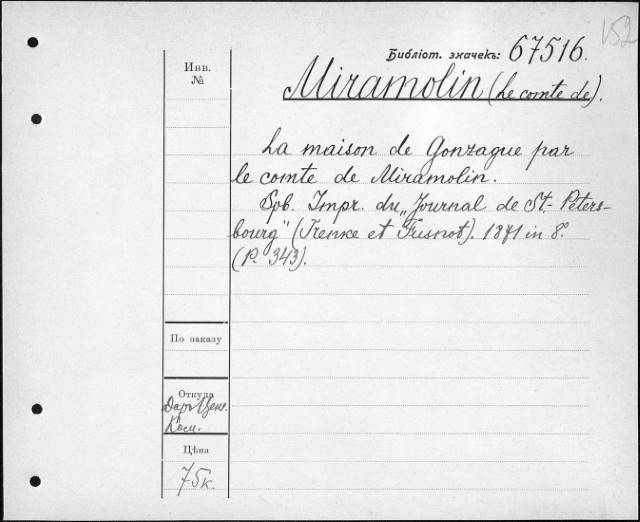 152
Библіот. значекъ: 67516.
Инв.
№
Miramolin (Le comte de).
La maison de Gonzague par
le comte de Miramolin.
Spb. Impr. du „Journal de St.-Peters-
bourg" (Trenke et Fusnot). 1871 in 8°.
(P. 343).
По заказу
Откуда
Даръ Ценз.
Ком.
Цѣна
75 к.